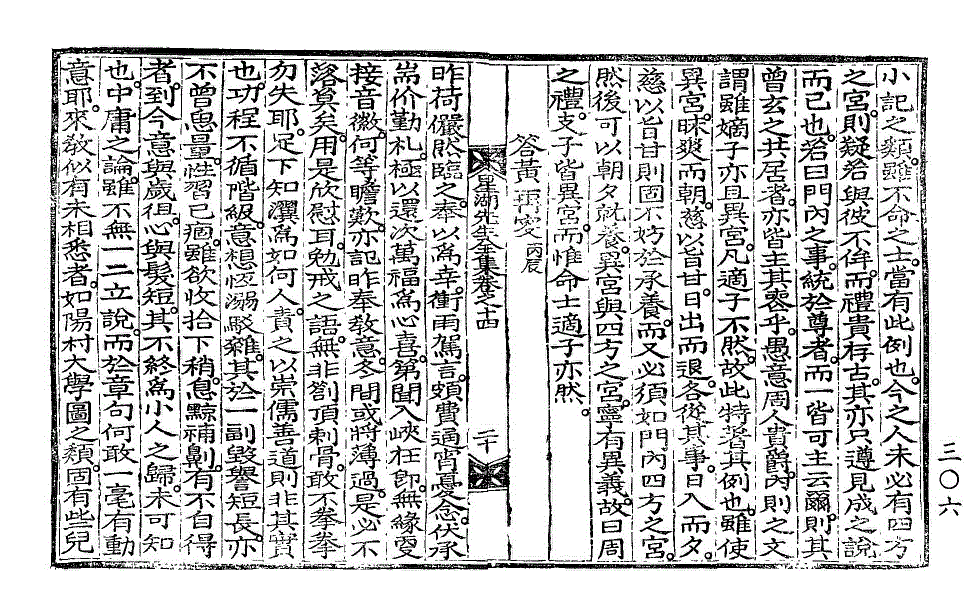 小記之類。雖不命之士。當有此例也。今之人未必有四方
之宮。則疑若與彼不侔。而禮貴存古。其亦只遵見成之說
而已也。若曰門內之事。統於尊者。而一皆可主云爾。則其
曾玄之共居者。亦皆主其喪乎。愚意周人貴爵。內則之文
謂雖嫡子亦且異宮。凡適子不然。故此特著其例也。雖使
異宮。昧爽而朝。慈以旨甘。日出而退。各從其事。日入而夕。
慈以旨甘則固不妨於承養。而又必須如門內四方之宮。
然後可以朝夕就養。異宮與四方之宮。寧有異義。故曰周
之禮。支子皆異宮。而惟命士適子亦然。
答黃 丙辰
星湖先生全集卷之十四
二十
昨荷儼然臨之。奉以爲幸。衝雨駕言。頗費通宵憂念。伏承
耑价勤札。極以還次萬福爲心喜。第聞入峽在卽。無緣更
接音徽。何等瞻歎。亦記昨奉教意。冬間或將薄過。是必不
落莫矣。用是欣慰耳。勉戒之語。無非劄頂刺骨。敢不拳拳
勿失耶。足下知瀷爲如何人。責之以崇儒善道則非其實
也。功程不循階級。意想恆溺駁雜。其於一副毀譽短長。亦
不曾思量。性習已痼。雖欲收拾下稍。息黥補劓。有不自得
者。到今意與歲徂。心與髮短。其不終爲小人之歸。未可知
也。中庸之論。雖不無一二立說。而於章句何敢一毫有動
意耶。來教似有未相悉者。如陽村大學圖之類。固有些兒
三〇六